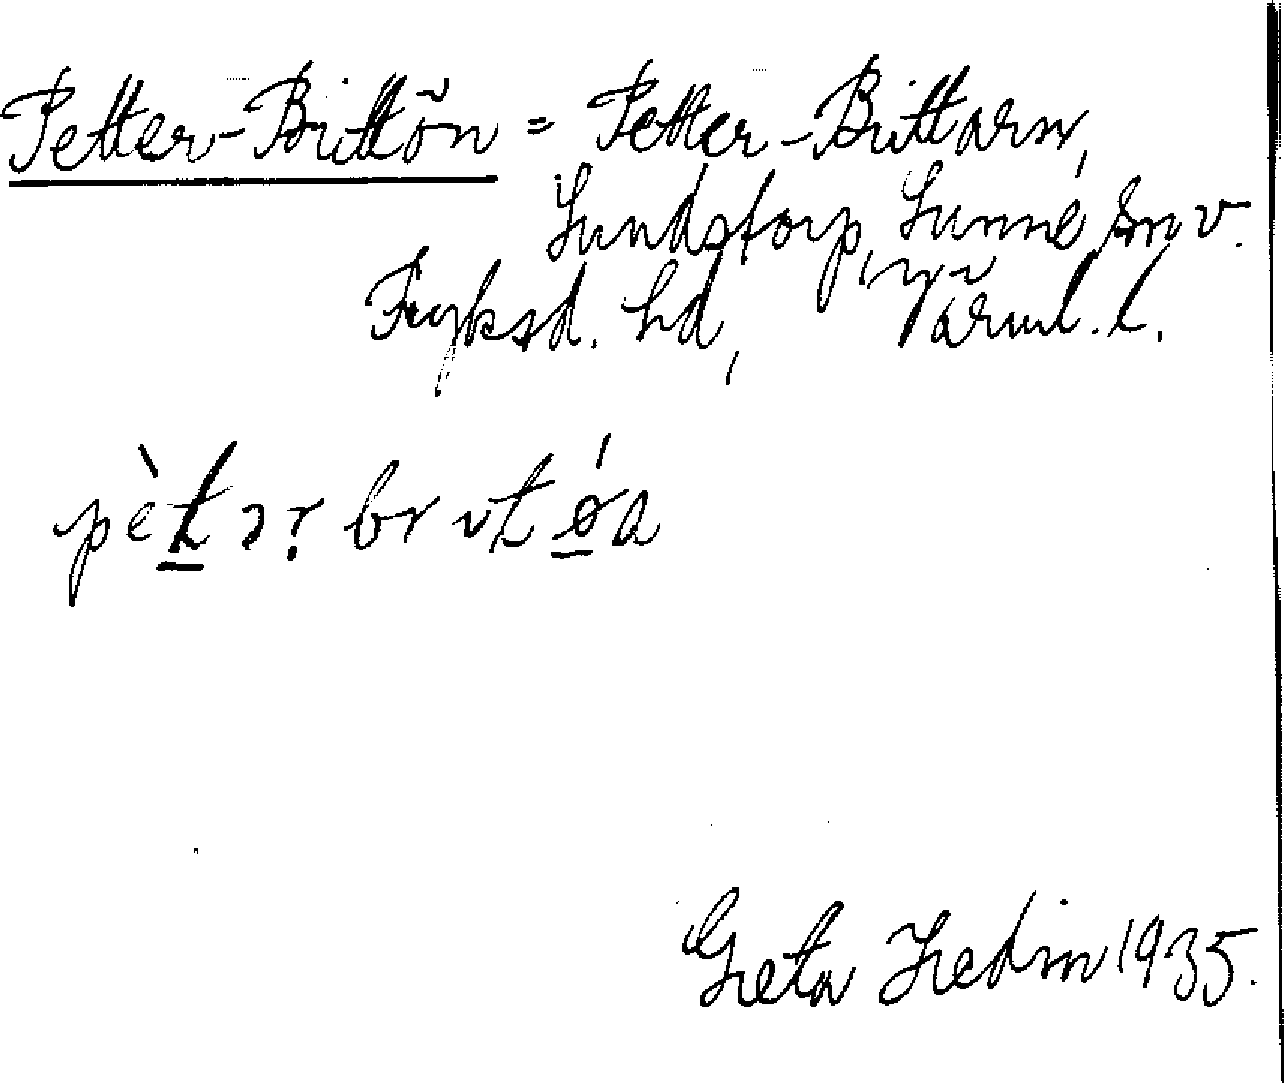 Petter-Brittön = Petter-Brittarn,
Lundstorp, Sunne sn v.
Fryksd. hd, Värml. l.
pètər britǿa
Greta Hedin 1935.